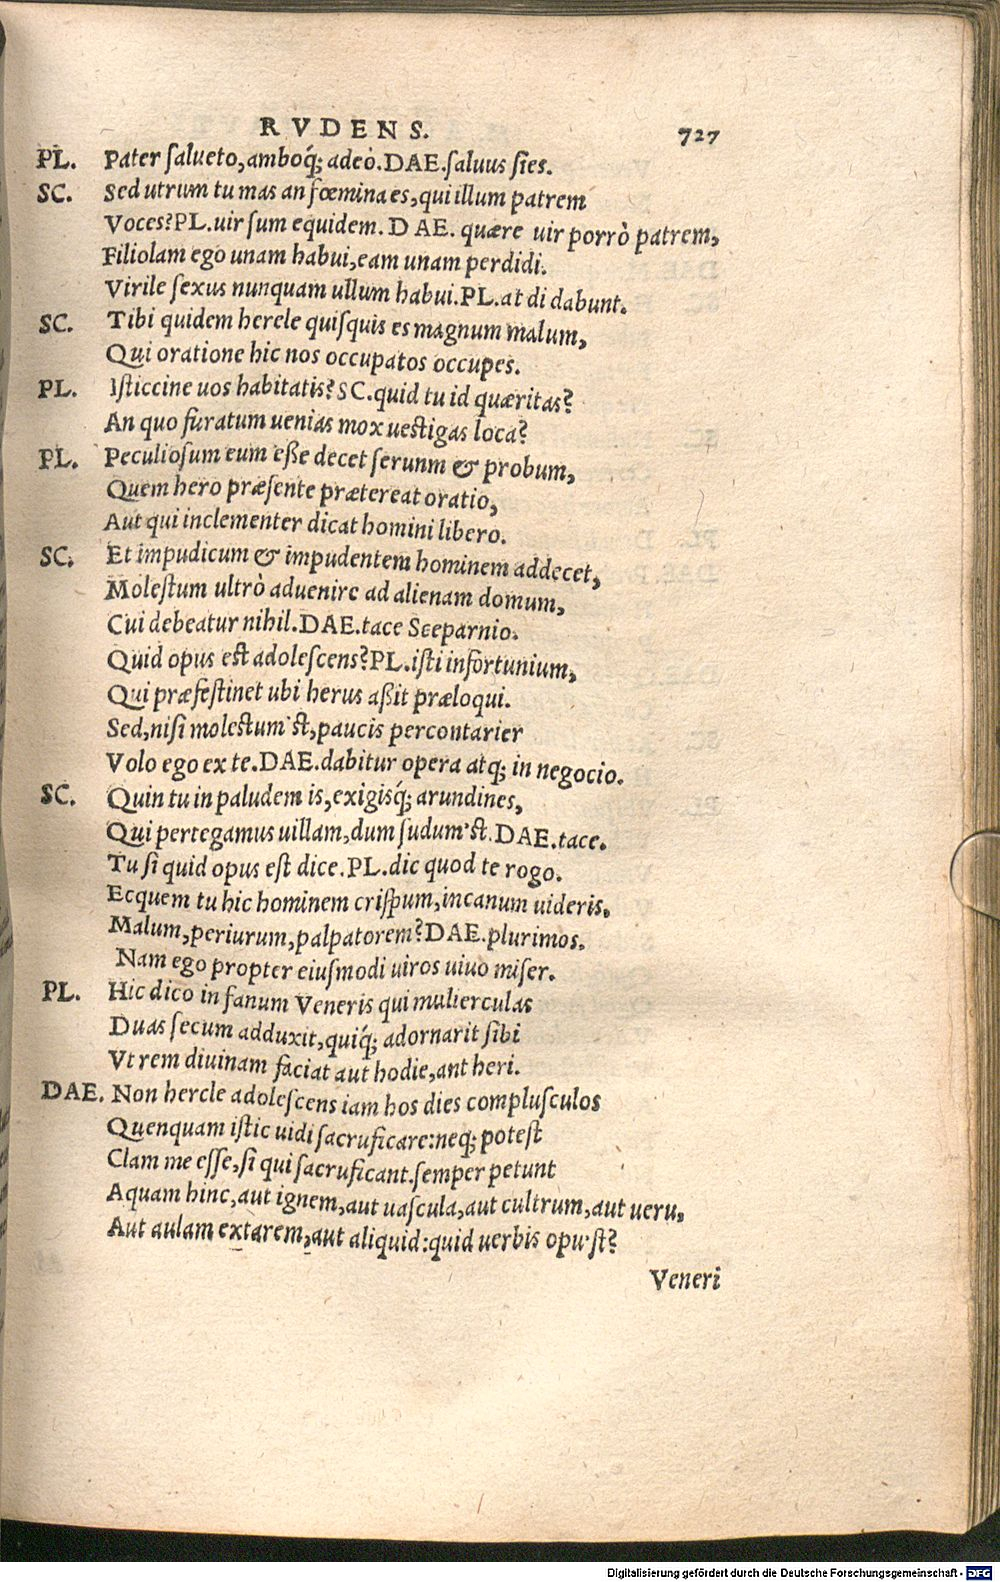 RVDENS. 727
PL. Pater salueto, amboq́; adeò. DAE. saluus sies.
SC. Sed utrum tu mas an fœmina es, qui illum patrem
Voces? PL. uir sum equidem. DAE. quære uir porrò patrem,
Filiolam ego unam habui, eam unam perdidi.
Virile sexus nunquam ullum habui. PL. at di dabunt.
SC. Tibi quidem hercle quisquis es magnum malum,
Qui oratione hic nos occupatos occupes.
PL. Isticcine uos habitatis? SC. quid tu id quæritas?
An quo furatum uenias mox uestigas loca?
PL. Peculiosum eum eße decet serunm & probum,
Quem hero præsente prætereat oratio,
Aut qui inclementer dicat homini libero.
SC. Et impudicum & impudentem hominem addecet,
Molestum ultrò aduenire ad alienam domum,
Cui debeatur nihil. DAE. tace Sceparnio.
Quid opus est adolescens? PL. isti infortunium,
Qui præfestinet ubi herus aßit præloqui.
Sed, nisi molestum'st, paucis percontarier
Volo ego ex te. DAE. dabitur opera atq; in negocio.
SC. Quin tu in paludem is, exigisq́; arundines,
Qui pertegamus uillam, dum sudum'st. DAE. tace.
Tu si quid opus est dice. PL. dic quod te rogo.
Ecquem tu hic hominem crispum, incanum uideris,
Malum, periurum, palpatorem? DAE. plurimos.
Nam ego propter eiusmodi uiros uiuo miser.
PL. Hic dico in fanum Veneris qui mulierculas
Duas secum adduxit, quiq́; adornarit sibi
Vt rem diuinam faciat aut hodie, ant heri.
DAE. Non hercle adolescens iam hos dies complusculos
Quenquam istic uidi sacruficare: neq; potest
Clam me esse, si qui sacruficant. semper petunt
Aquam hinc, aut ignem, aut uascula, aut cultrum, aut ueru,
Aut aulam extarem, aut aliquid: quid uerbis opu'st?
Veneri
Digitalisierung gefördert durch die Deutsche Forschungsgemeinschaft - DFG